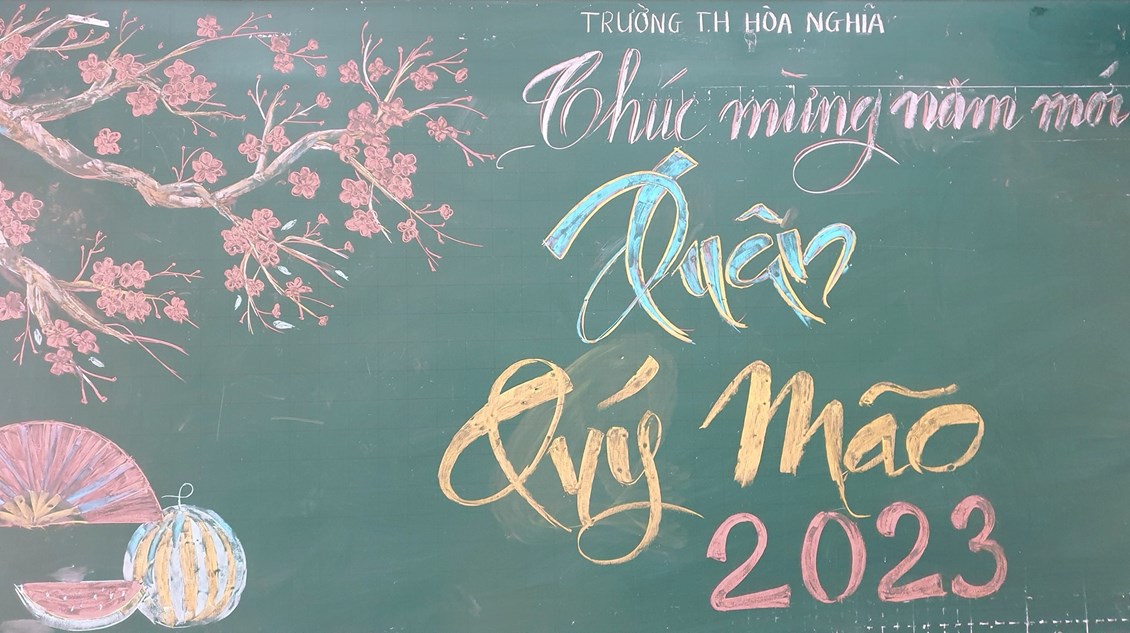 TRƯỜNG T.H HÒA NGHĨA
Chúc mừng năm mới
Xuân
Quý Mão
2023